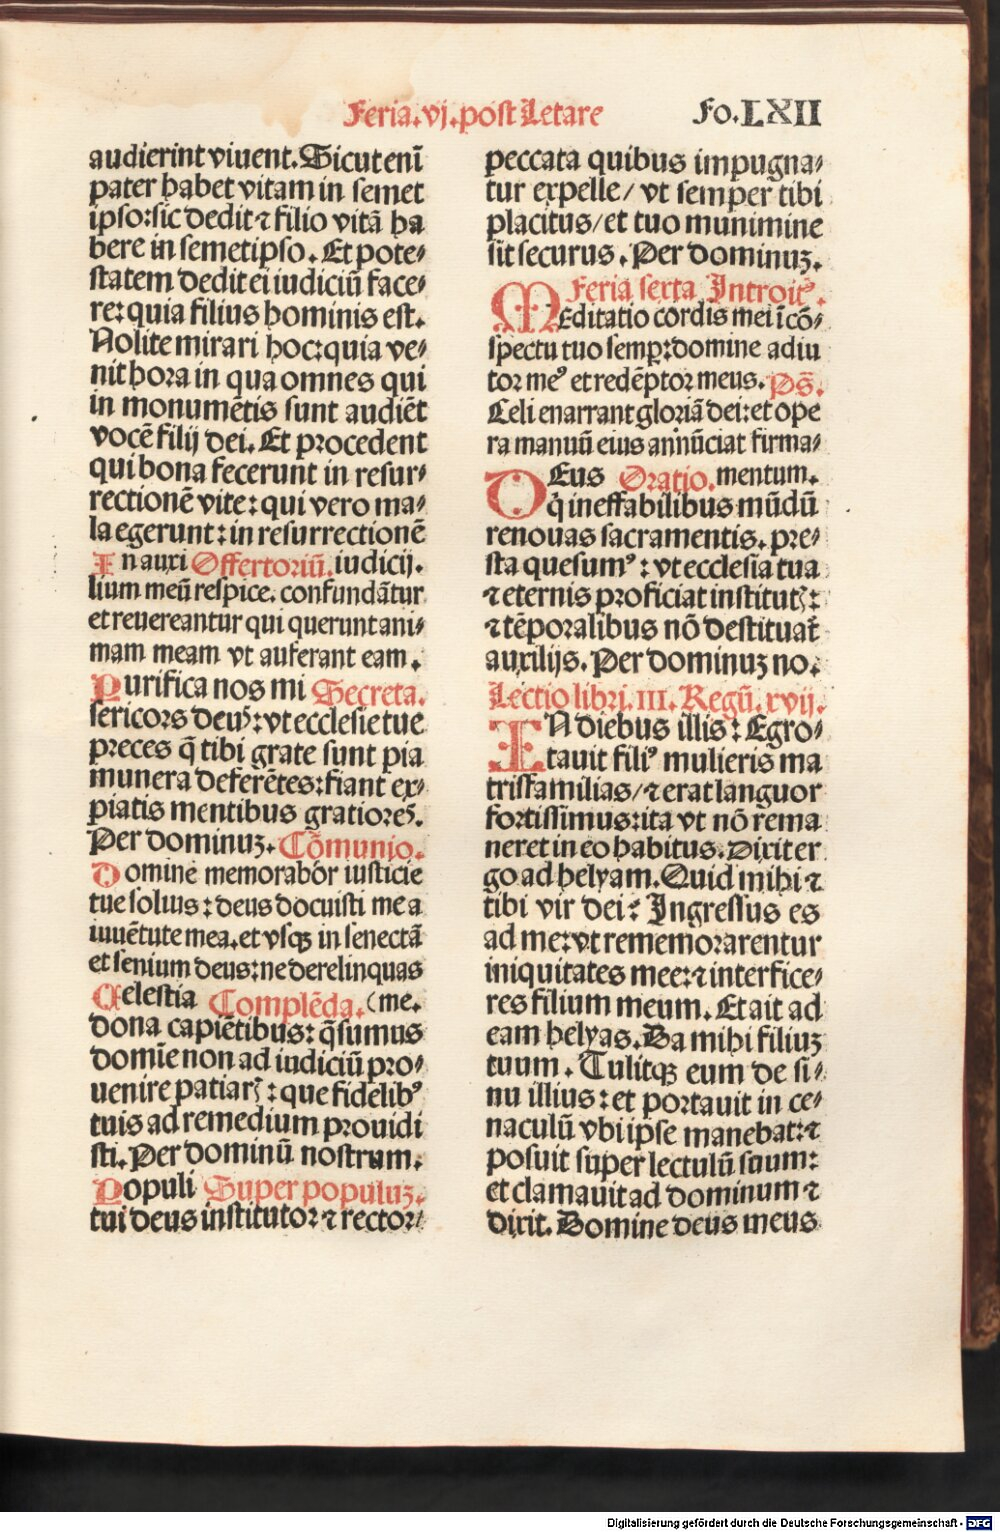 Feria.vj.post Letare
Fo.LXII
audierint viuent. Sicut enī
pater habet vitam in semet
ipso: sic dedit ⁊ filio vitā ha
bere in semetipso. Et pote⸗
statem dedit ei iudiciū face⸗
re: quia filius hominis est.
Nolite mirari hoc: quia ve⸗
nit hora in qua omnes qui
in monumētis sunt audiēt
vocē filij dei. Et procedent
qui bona fecerunt in resur⸗
rectionē vite: qui vero ma⸗
la egerunt: in resurrectionē
In auxi Offertoriū. iudicij.
lium meū respice. confundātur
et reuereantur qui querunt ani⸗
mam meam vt auferant eam.
Purifica nos mi Secreta.
sericors deus: vt ecclesie tue
preces q̄ tibi grate sunt pia
munera deferētes: fiant ex⸗
piatis mentibus gratiores.
Per dominuꝫ. Cōmunio.
Domine memorabor iusticie
tue solius: deus docuisti me a
iuuētute mea. et vsqꝫ in senectā
et senium deus: ne derelinquas
Celestia Complēda. (me.
dona capiētibus: q̄sumus
domīe non ad iudiciū pro⸗
uenire patiaꝛ: que fidelibꝰ
tuis ad remedium prouidi
sti. Per dominū nostrum.
Populi Super populuꝫ.
tui deus institutor ⁊ rector⸗
peccata quibus impugna⸗
tur expelle/ vt semper tibi
placitus/ et tuo munimine
sit securus. Per dominuꝫ.
Feria sexta Introitꝰ.
MEditatio cordis mei ī cō⸗
spectu tuo semp: domine adiu
tor meꝰ et redēptor meus. Ps̄.
Celi enarrant gloriā dei: et ope
ra manuū eius annūciat firma⸗
DEus Oratio. mentum.
q̇ ineffabilibus mūdū
renouas sacramentis. pre⸗
sta quesumꝰ: vt ecclesia tua
⁊ eternis proficiat institutꝭ:
⁊ tēporalibus nō destituat̄
auxilijs. Per dominuꝫ no.
Lectio libri. III. Regū. xvij.
IN diebus illis: Egro⸗
tauit filiꝰ mulieris ma
trisfamilias/ ⁊ erat languor
fortissimus: ita vt nō rema
neret in eo habitus. Dixit er
go ad helyam. Quid mihi ⁊
tibi vir dei? Ingressus es
ad me: vt rememorarentur
iniquitates mee: ⁊ interfice⸗
res filium meum. Et ait ad
eam helyas. Da mihi filiuꝫ
tuum. Tulitqꝫ eum de si⸗
nu illius: et portauit in ce⸗
naculū vbi ipse manebat: ⁊
posuit super lectulū suum:
et clamauit ad dominum ⁊
dixit. Domine deus meus
Digitalisierung gefördert durch die Deutsche Forschungsgemeinschaft - DFG